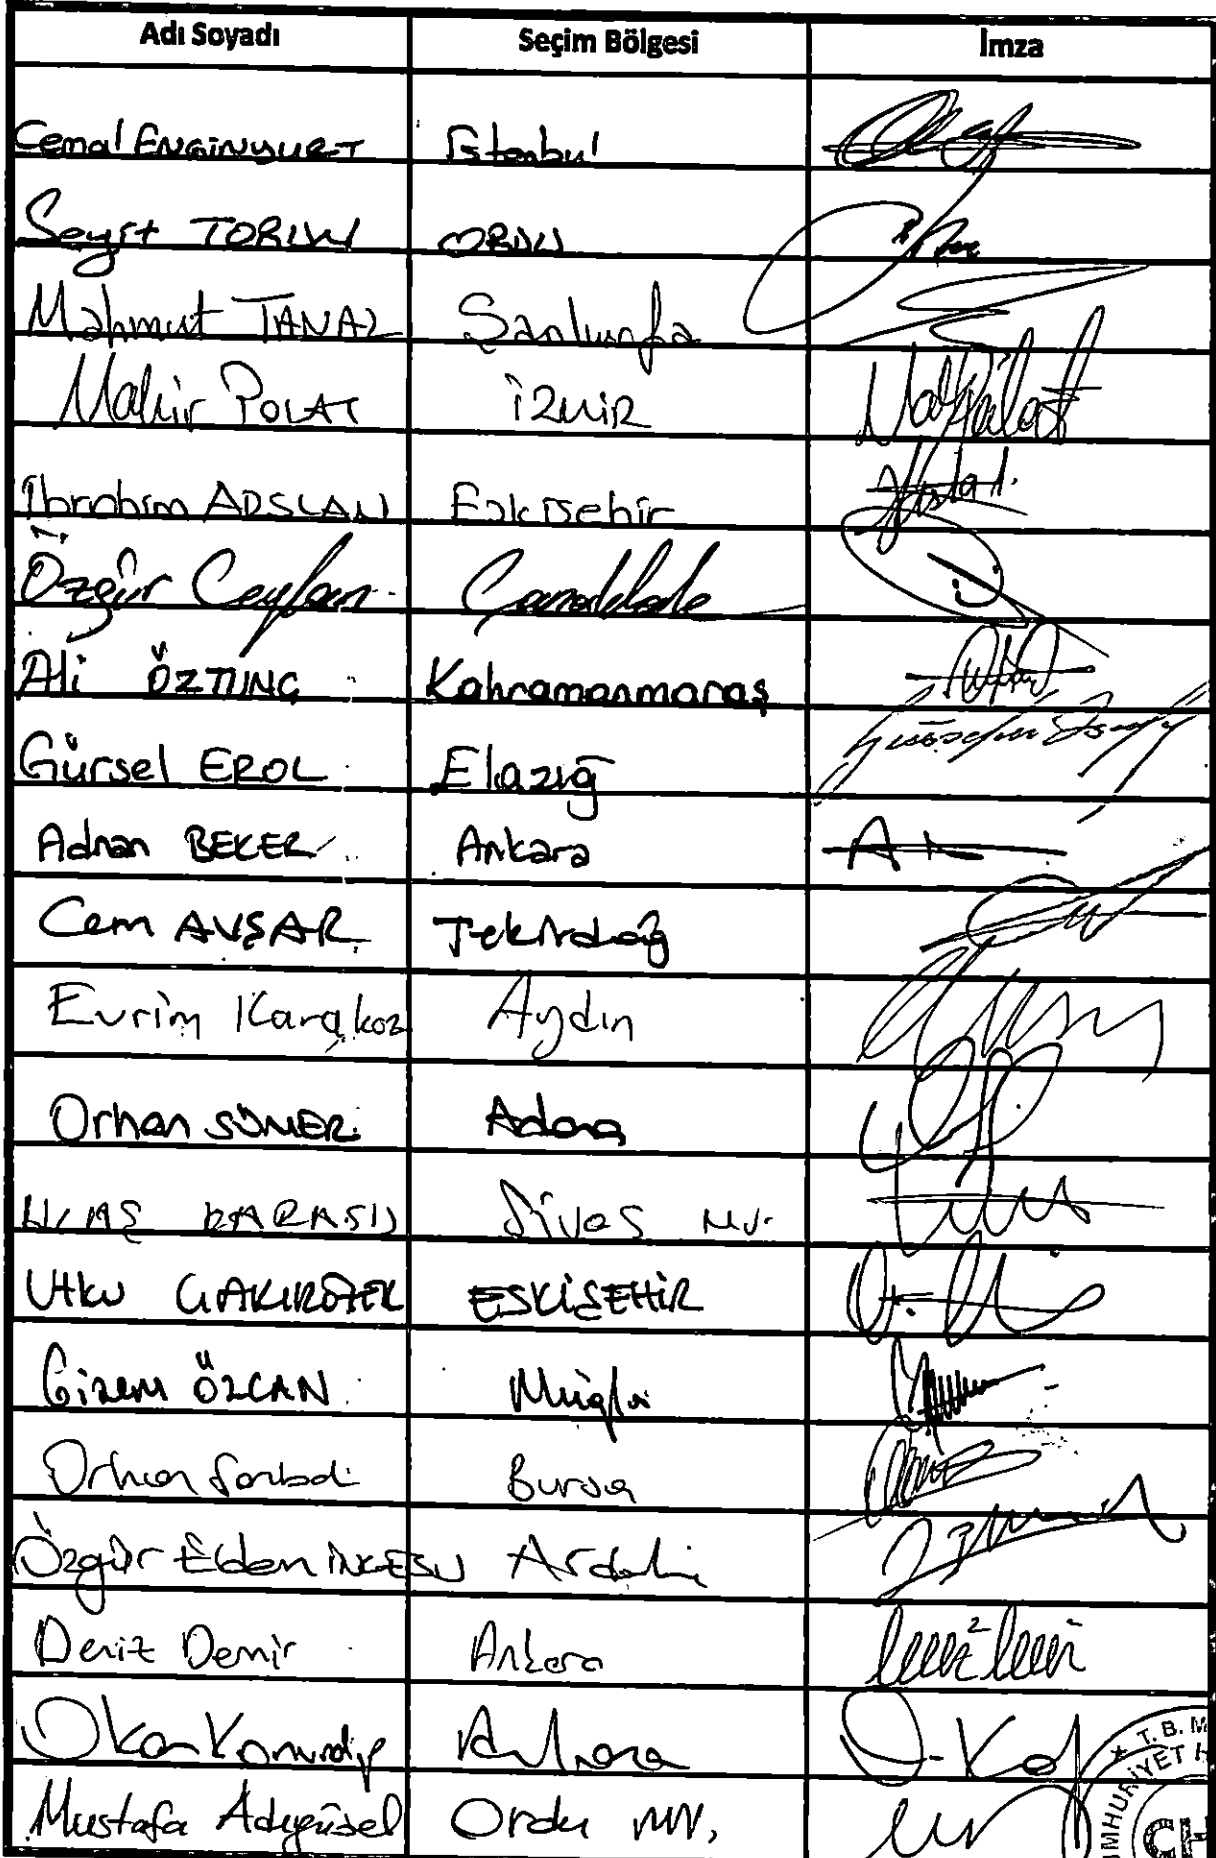 Adı Soyadı Seçim Bölgesi İmza
Cemal ENGİNYURT İstanbul
Seyit TORUN ORDU
Mahmut TANAL Şanlıurfa
Mahir POLAT İZMİR
İbrahim ARSLAN Eskişehir
Özgür Ceylan Çanakkale
Ali ÖZTUNÇ Kahramanmaraş
Gürsel EROL Elazığ
Adnan BEKER Ankara
Cem AVŞAR Tekirdağ
Evrim Karakoz Aydın
Orhan SÜMER Adana
ULAŞ KARASU Sivas MV.
Utku ÇAKIRÖZER ESKİŞEHİR
Gizem ÖZCAN Muğla
Orhan Sarıbal Bursa
Özgür Erdem İNCESU Ardahan
Deniz Demir Ankara
Okan Konuralp Ankara O-Ko
Mustafa Adıgüzel Ordu MV.
T.B.M
CH